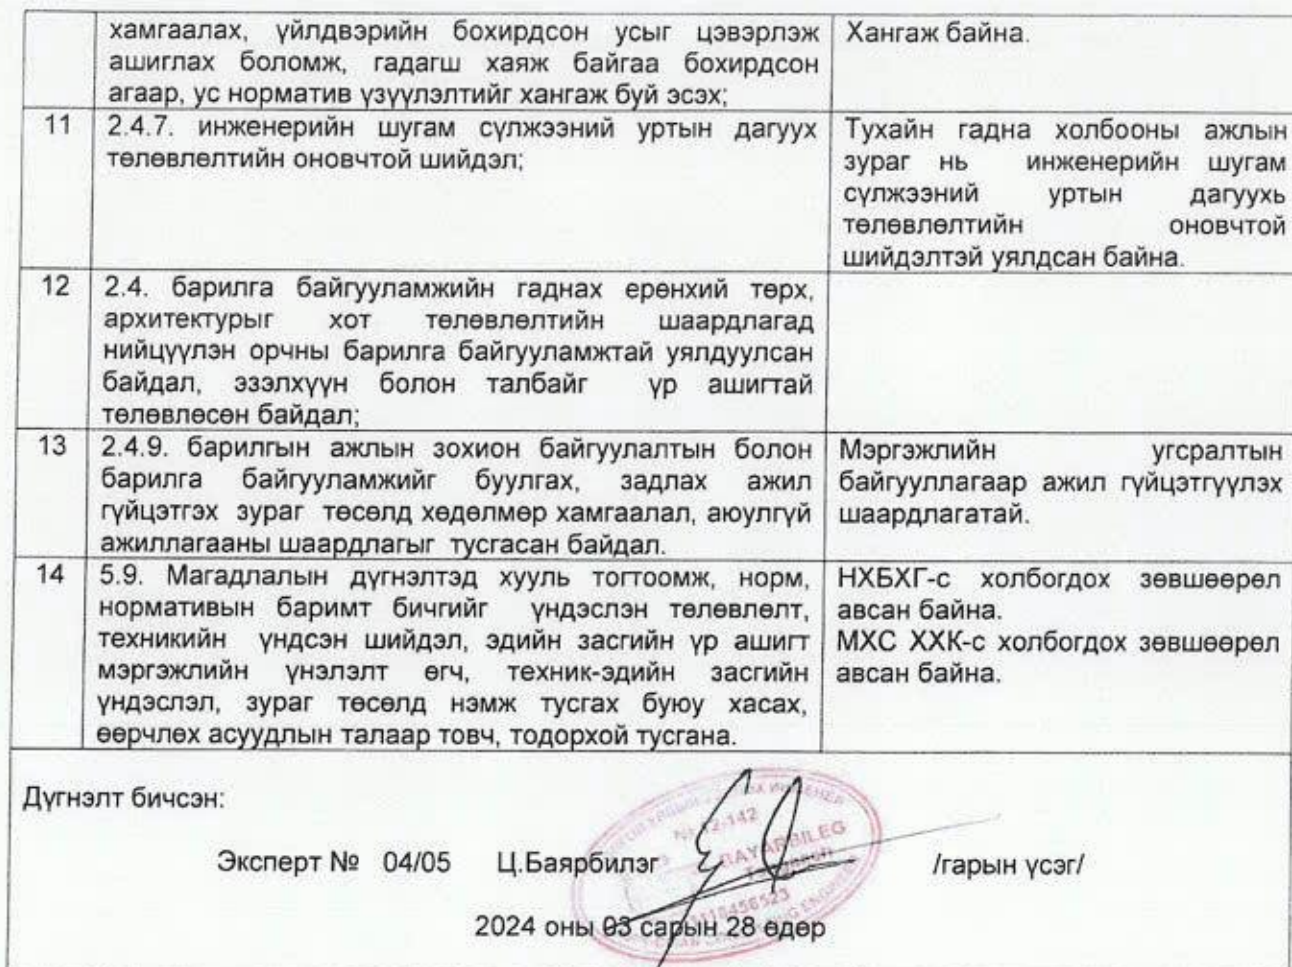 хамгаалах, үйлдвэрийн бохирдсон усыг цэвэрлэж
ашиглах боломж, гадагш хаяж байгаа бохирдсон
агаар, ус норматив үзүүлэлтийг хангаж буй эсэх;
Хангаж байна.
11
2.4.7. инженерийн шугам сүлжээний уртын дагуух
төлөвлөлтийн оновчтой шийдэл;
Тухайн гадна холбооны ажлын
зураг нь инженерийн шугам
сүлжээний уртын дагуухь
төлөвлөлтийн оновчтой
шийдэлтэй уялдсан байна.
12
2.4. барилга байгууламжийн гаднах ерөнхий төрх,
архитектурыг хот төлөвлөлтийн шаардлагад
нийцүүлэн орчны барилга байгууламжтай уялдуулсан
байдал, эзэлхүүн болон талбайг үр ашигтай
төлөвлөсөн байдал;
13
2.4.9. барилгын ажлын зохион байгуулалтын болон
барилга байгууламжийг буулгах, задлах ажил
гүйцэтгэх зураг төсөлд хөдөлмөр хамгаалал, аюулгүй
ажиллагааны шаардлагыг тусгасан байдал.
Мэргэжлийн угсралтын
байгууллагаар ажил гүйцэтгүүлэх
шаардлагатай.
14
5.9. Магадлалын дүгнэлтэд хууль тогтоомж, норм,
нормативын баримт бичгийг үндэслэн төлөвлөлт,
техникийн үндсэн шийдэл, эдийн засгийн үр ашигт
мэргэжлийн үнэлэлт өгч, техник-эдийн засгийн
үндэслэл, зураг төсөлд нэмж тусгах буюу хасах,
өөрчлөх асуудлын талаар товч, тодорхой тусгана.
НХБХГ-с холбогдох зөвшөөрөл
авсан байна.
МХС ХХК-с холбогдох зөвшөөрөл
авсан байна.
Дүгнэлт бичсэн:
Эксперт № 04/05 Ц.Баярбилэг /гарын үсэг/
BAYARBILEG
2024 оны 03 сарын 28 өдөр